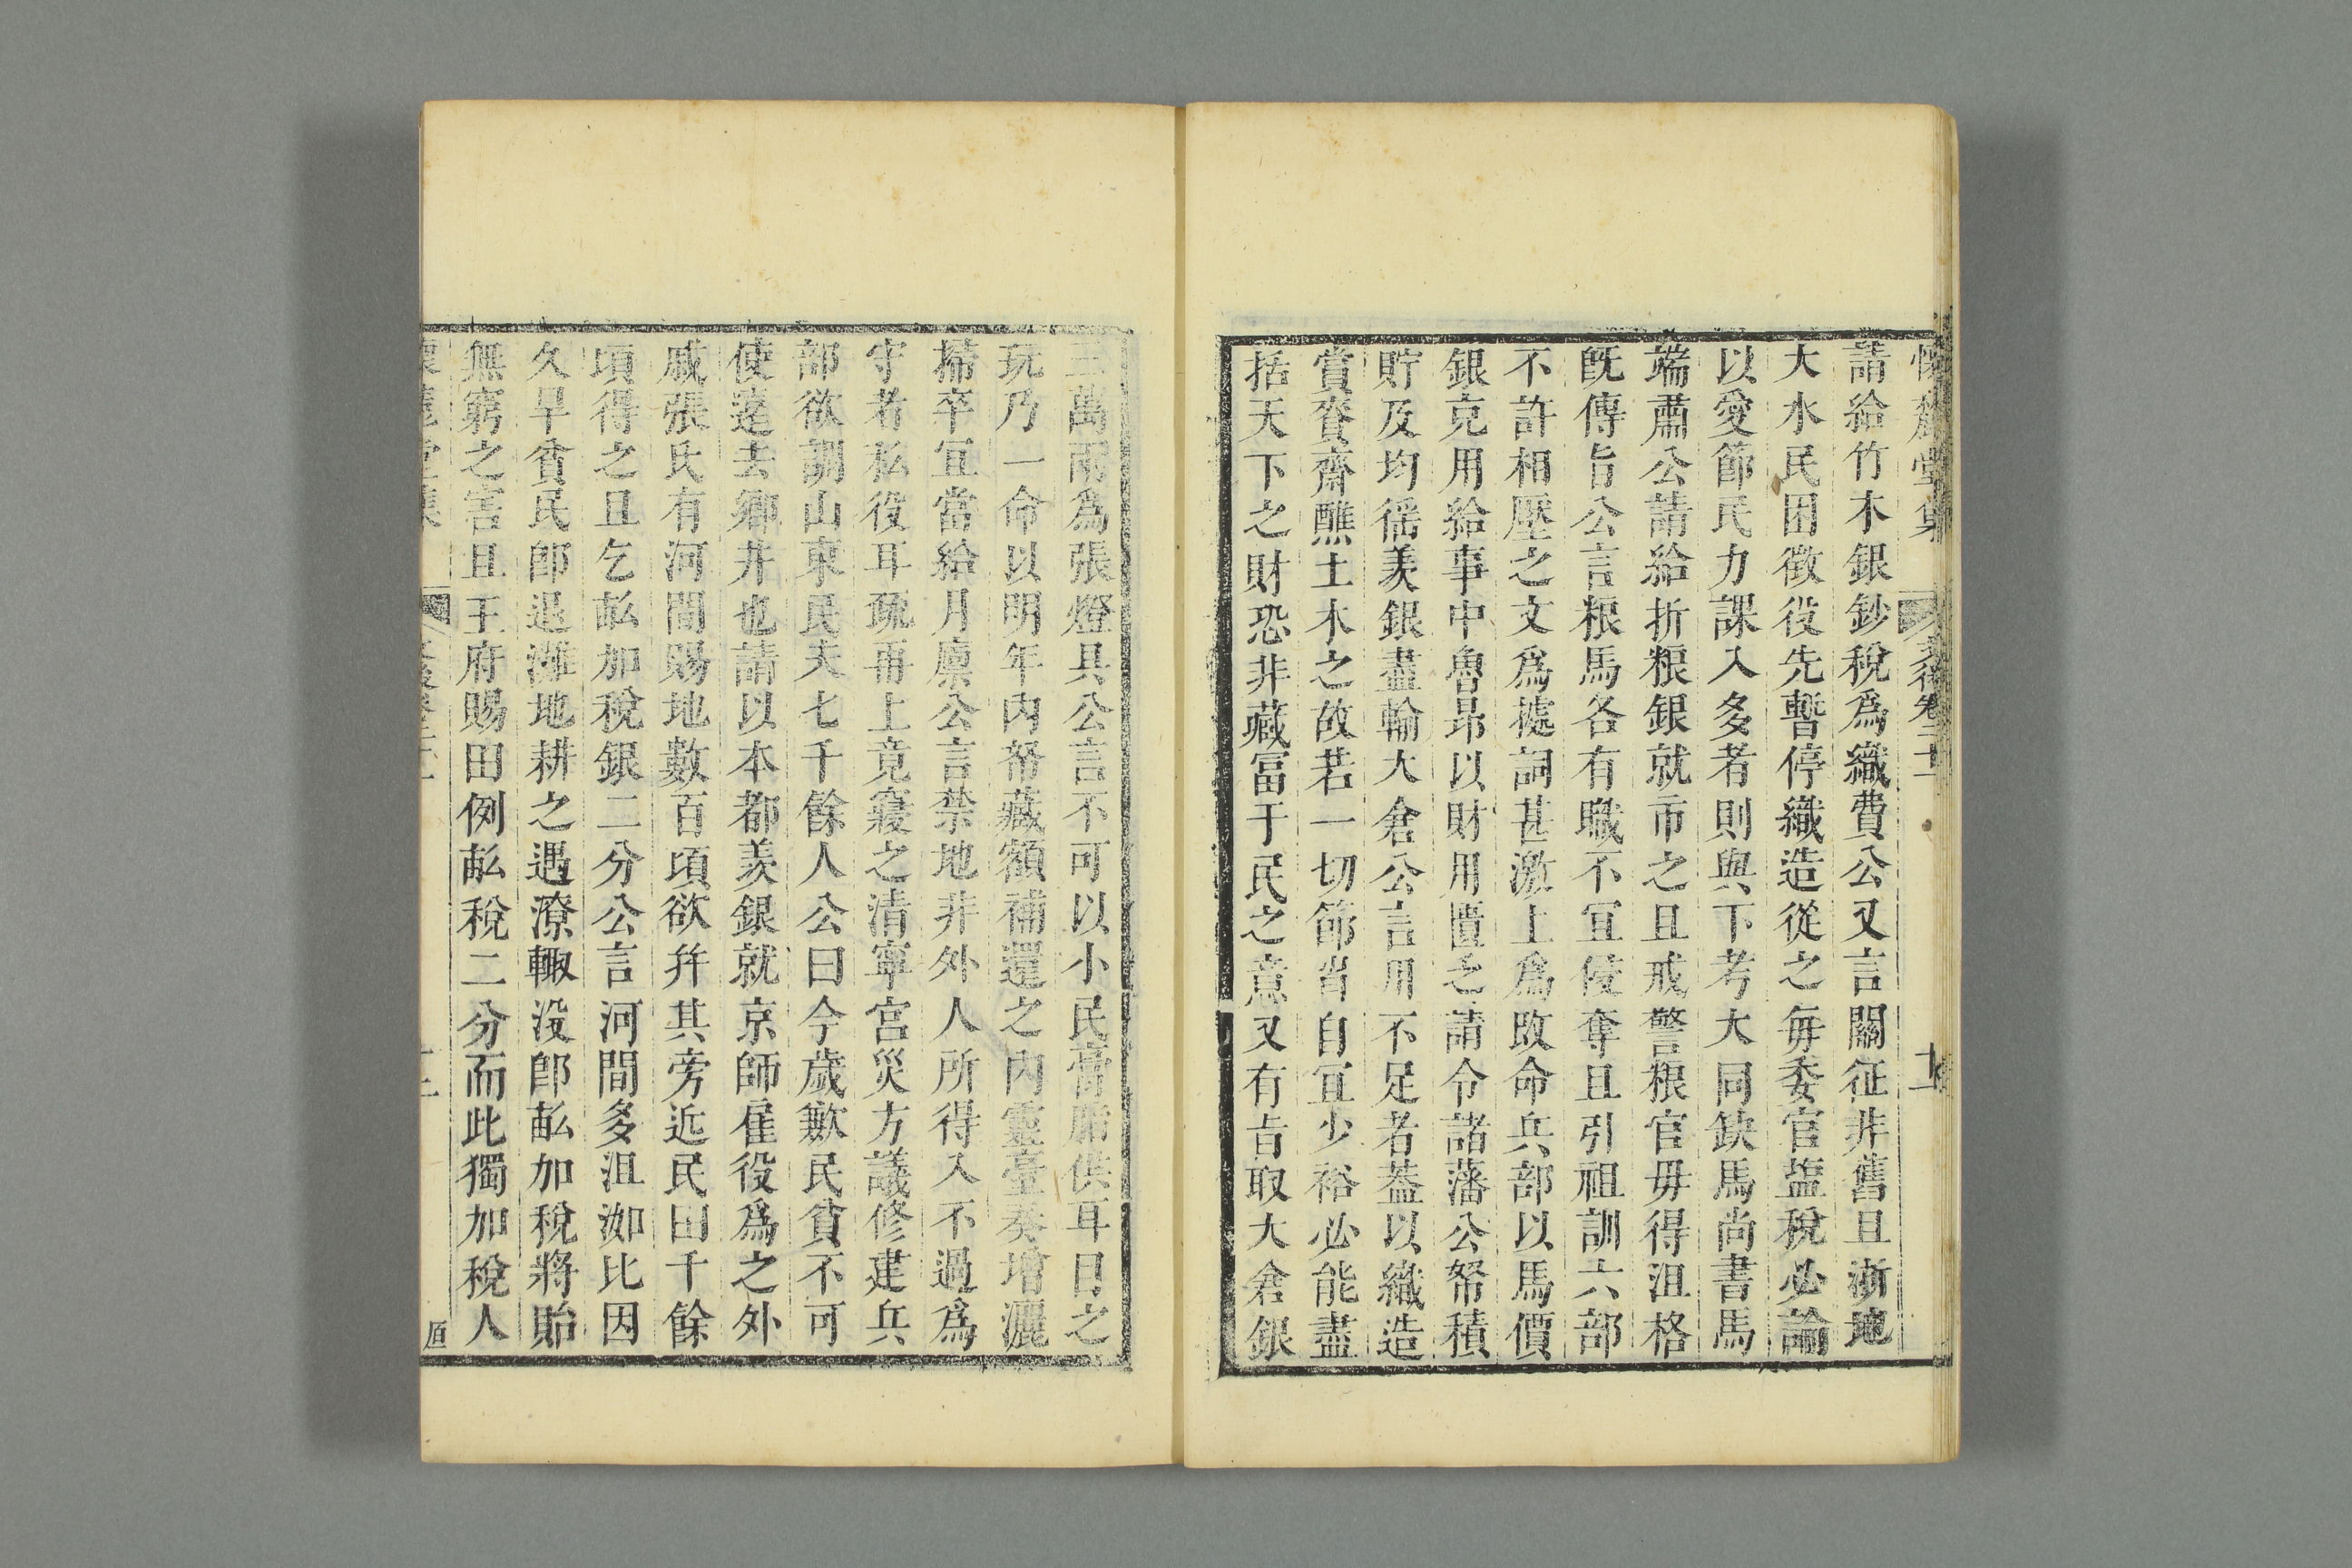 懷麓堂集 文後卷二十一 十一
請給竹木銀鈔稅爲織費公又言關征非舊且浙地
大水民困徵役先暫停織造從之每委官塩稅必論
以愛節民力課入多者則與下考大同缺馬尚書馬
端肅公請給折粮銀就市之且戒警粮官毋得沮格
旣傳旨公言粮馬各有職不宜侵奪且引祖訓六部
不許相壓之文爲據詞甚激上爲改命兵部以馬價
銀克用給事中魯昂以財用匱乏請令諸藩公帑積
貯及均徭羡銀盡輸大倉公言用不足者葢以織造
賞賚齋醮土木之故若一切節省自宜少裕必能盡
括天下之財恐非藏冨于民之意又有旨取大倉銀
三萬兩爲張燈具公言不可以小民膏脂供耳目之
玩乃一命以明年內帑藏額補還之內靈臺奏增灑
掃卒宜當給月廪公言禁地非外人所得入不過爲
守者私役耳疏再上竟寢之清寧宮災方議修建兵
部欲調山東民夫七千餘人公曰今歲歉民貧不可
使遠去鄉井也請以本都羡銀就京師雇役爲之外
戚張氏有河間賜地數百頃欲并其旁近民田千餘
頃得之且乞畝加稅銀二分公言河間多沮洳比因
久旱貧民卽退灘地耕之遇潦輙沒卽畝加稅將貽
無窮之害且王府賜田例畝稅二分而此獨加稅人
懷麓堂集